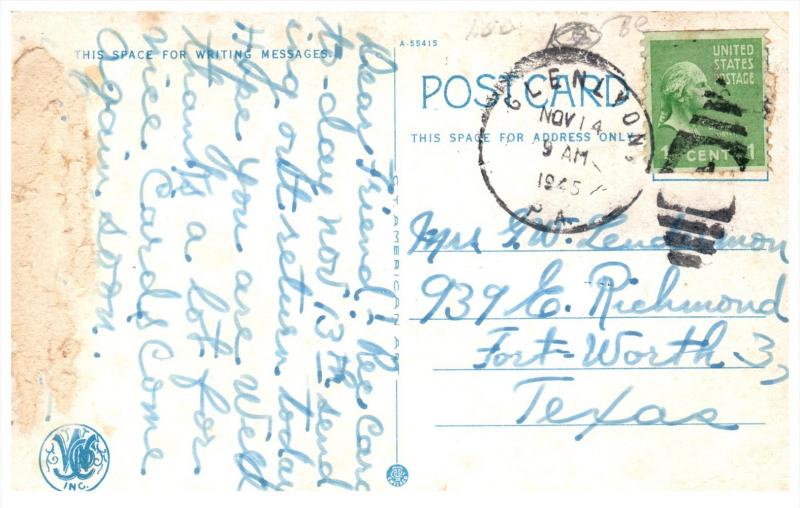 THIS SPACE FOR WRITING MESSAGES.
A-55415
POSTCARD
THIS SPACE FOR ADDRESS ONLY
GLEN LYON
NOV 14
9 AM
1945
PA.
UNITED
STATES
POSTAGE
1 CENT 1
Dear Friend: Rec Card
to-day nov 13th send
ing ott return today
Hope you are Well
thank's a lot for
nice Cards Come
again soon.
C.T. AMERICAN ART
Mrs G.W.
939 E. Richmond
Fort-Worth 3,
Texas
INC.